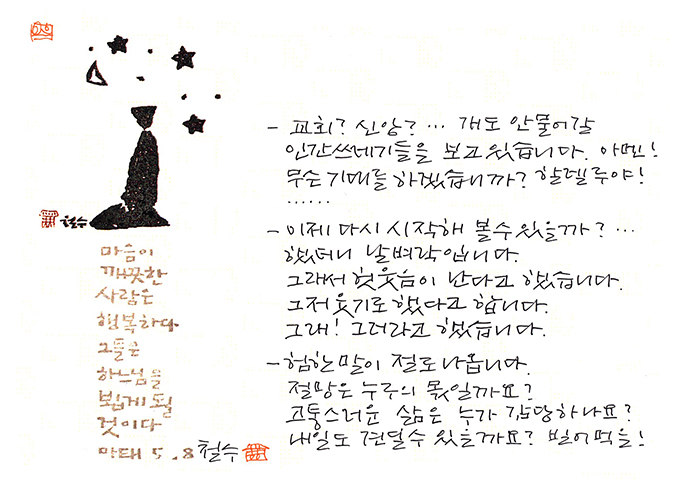 철수
마음이
깨끗한
사람은
행복하다.
그들은
하느님을
뵙게 될
것이다
마태 5.8 철수
- 교회? 신앙? … 개도 안 물어갈
인간쓰레기들을 보고 있습니다. 아멘!
무슨 기대를 하겠습니까? 할렐루야!
……
- 이제 다시 시작해 볼 수 있을까? …
했더니 날벼락입니다.
그래서 헛웃음이 난다고 했습니다.
그저 웃기로 했다고 합니다.
그래! 그러라고 했습니다.
- 험한 말이 절로 나옵니다.
절망은 누구의 몫일까요?
고통스러운 삶은 누가 감당하나요?
내일도 견딜 수 있을까요? 빌어먹을!